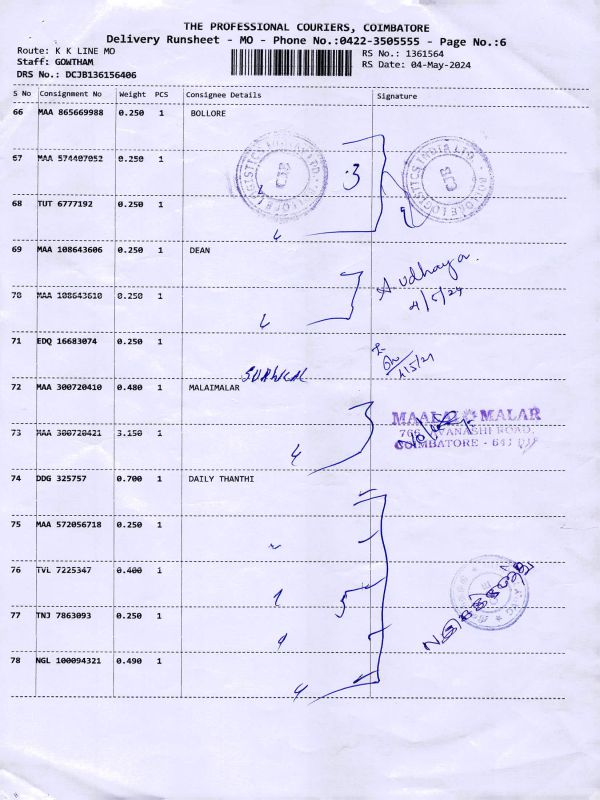 THE PROFESSIONAL COURIERS, COIMBATORE
Delivery Runsheet - MO - Phone No.:0422-3505555 - Page No.:6
Route: K K LINE MO
RS No.: 1361564
Staff: GOWTHAM
RS Date: 04-May-2024
DRS No.: DCJB136156406
S No Consignment No Weight PCS Consignee Details Signature
66 MAA 865669988 0.250 1 BOLLORE
67 MAA 574407052 0.250 1
3
68 TUT 6777192 0.250 1
69 MAA 108643606 0.250 1 DEAN
A. Udhaya.
70 MAA 108643610 0.250 1
4/5/24
71 EDQ 16683074 0.250 1
72 MAA 300720410 0.480 1 MALAIMALAR
MAALAI MALAR
73 MAA 300720421 3.150 1
COIMBATORE -
74 DDG 325757 0.700 1 DAILY THANTHI
75 MAA 572056718 0.250 1
76 TVL 7225347 0.400 1
5
77 TNJ 7863093 0.250 1
78 NGL 100094321 0.490 1